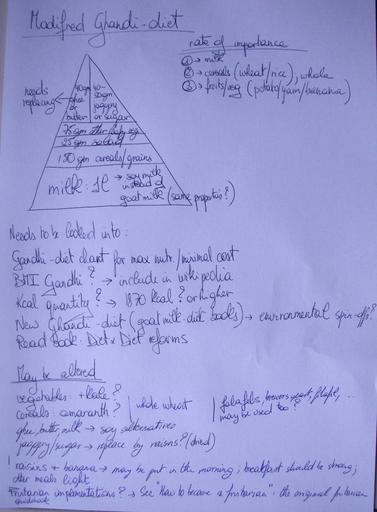 Modifred Ghandi-diet
rate of importance
① → milk
② → cereals (wheat/rice), whole
③ → fruits/veg (potato/yam/banana)
needs replacing
40gm ghee or butter
30gm jaggery or sugar
75 gm other leafy veg
25 gm salad
150 gm cereals/grains
milk: 1l → soy milk instead of goat milk (same properties?)
Needs to be looked into:
Gandhi-diet chart for max nutr./minimal cost
BMI Gandhi? → include in wikipedia
Kcal quantity? → 1870 kcal? or higher
New Ghandi-diet (goat milk-diet books) → environmental spin-offs?
Read Book: Diet & Diet reforms
May be altered
vegetables: + kale?
cereals: amaranth? | whole wheat
ghee, butter, milk → soy alternatives
jaggery/sugar → replace by raisins? (dried)
falafels, brewers yeast, pilafel, ...
may be used too?
! raisins + banana → may be put in the morning; breakfast should be strong;
other meals light
Fruitarian implementations? → See "How to become a fruitarian": the original fruitarian
guidebook